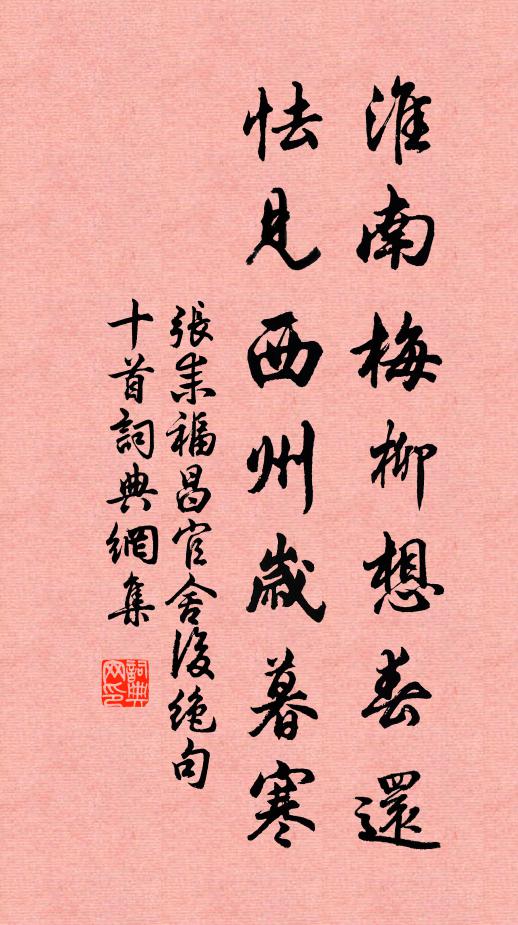 淮南梅柳想春還
怯見西州歲暮寒
張耒福昌官舍後絕句
十首詞典網集
詞典
网印